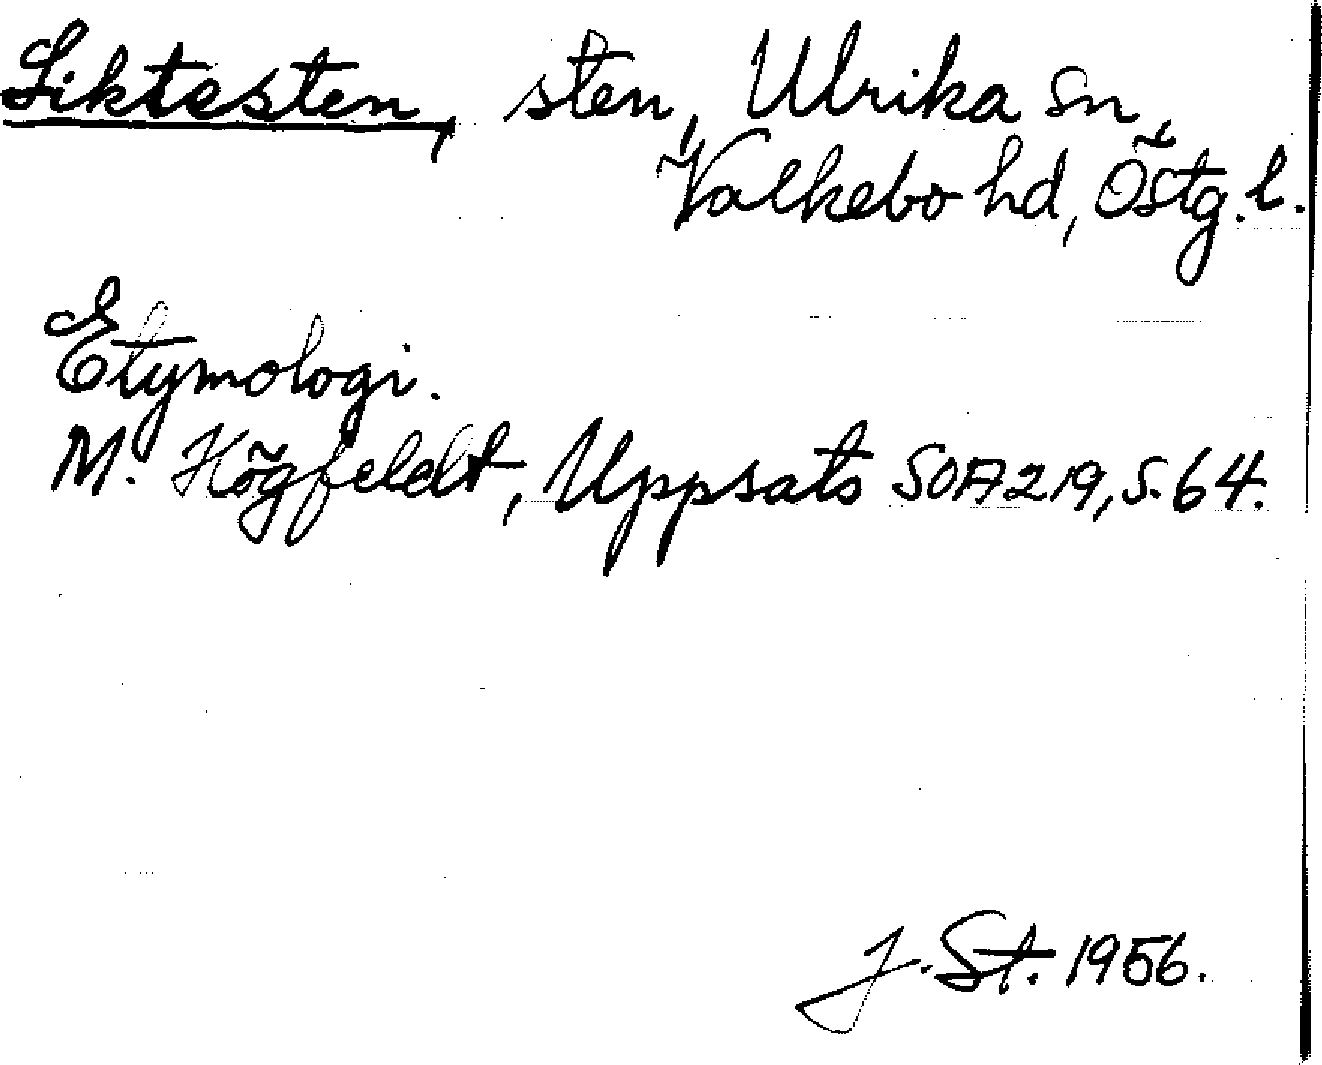 Siktesten, sten, Ulrika sn,
Valkebo hd, Östg. l.
Etymologi.
M. Högfeldt, Uppsats SOA 219, s. 64.
J. St. 1956.